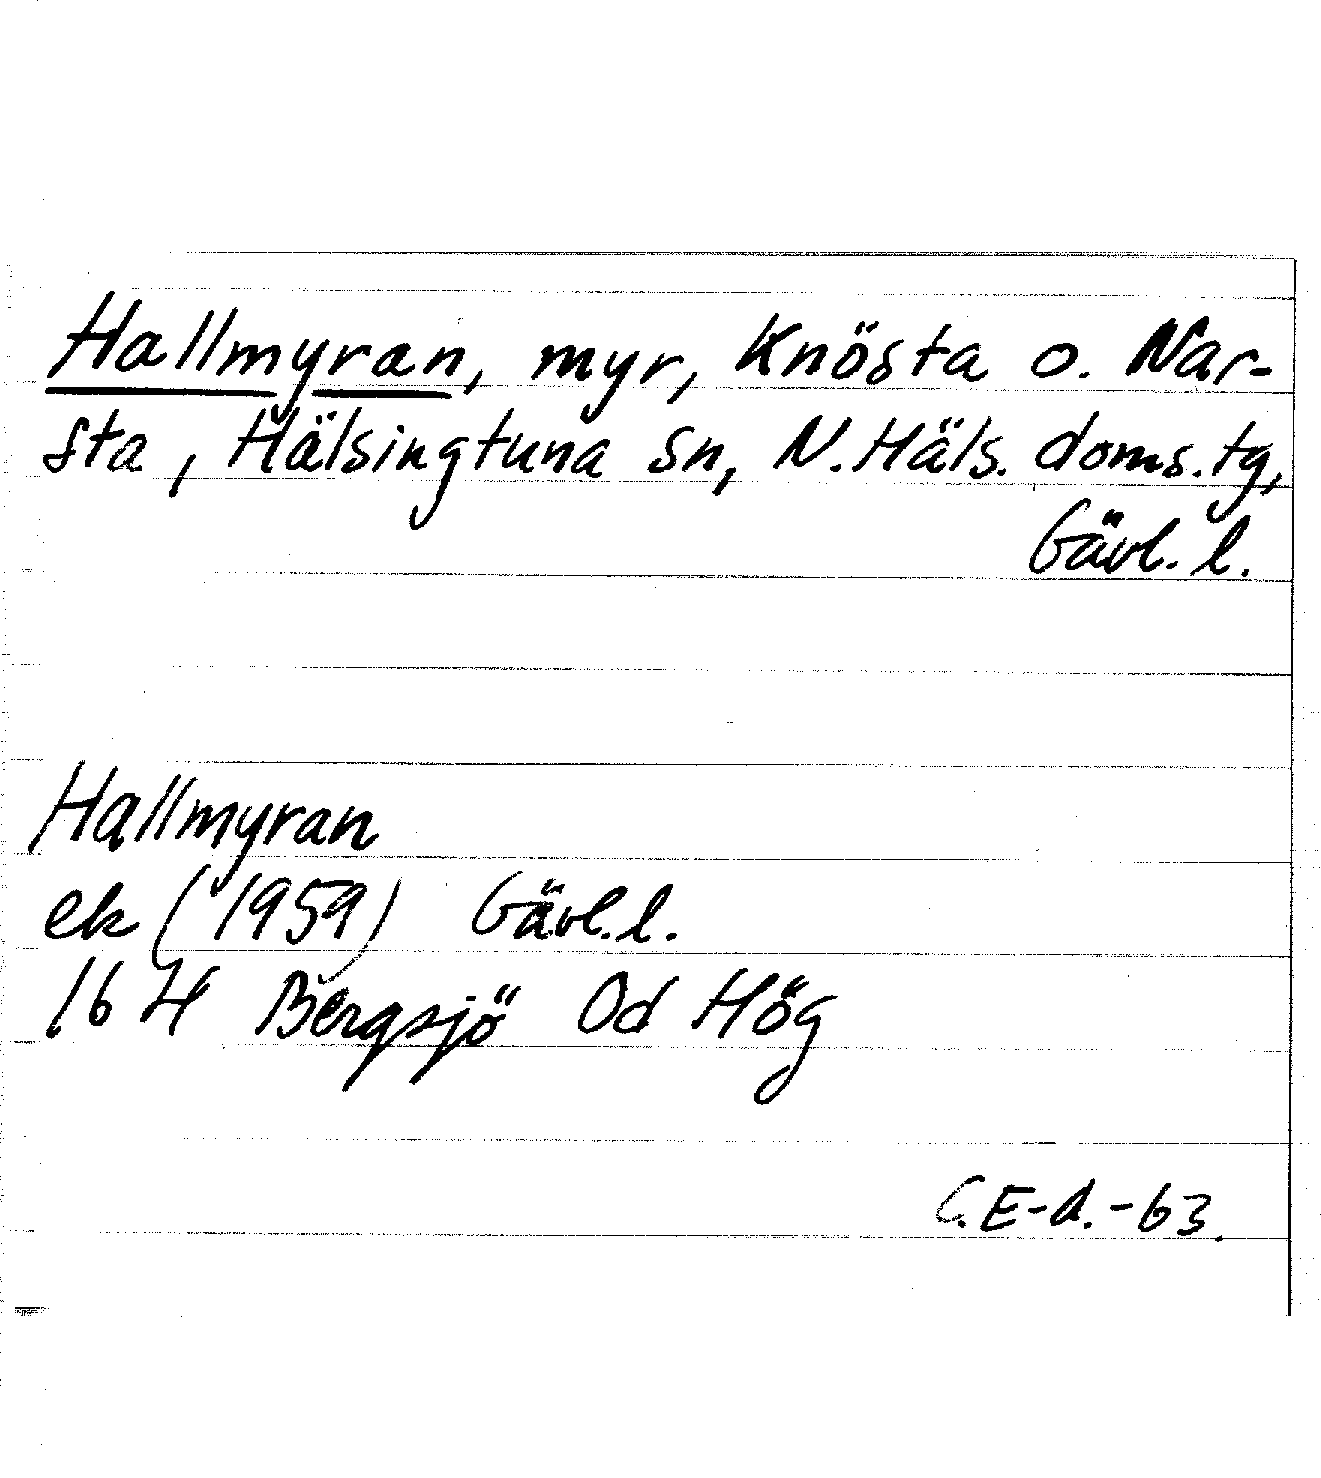 Hallmyran, myr, Knösta o. Nar-
sta, Hälsingtuna sn, N. Häls. doms. tg,
Gävl. l.
Hallmyran
ek (1959) Gävl. l.
16 H Bergsjö Od Hög
C.E-d.-63.